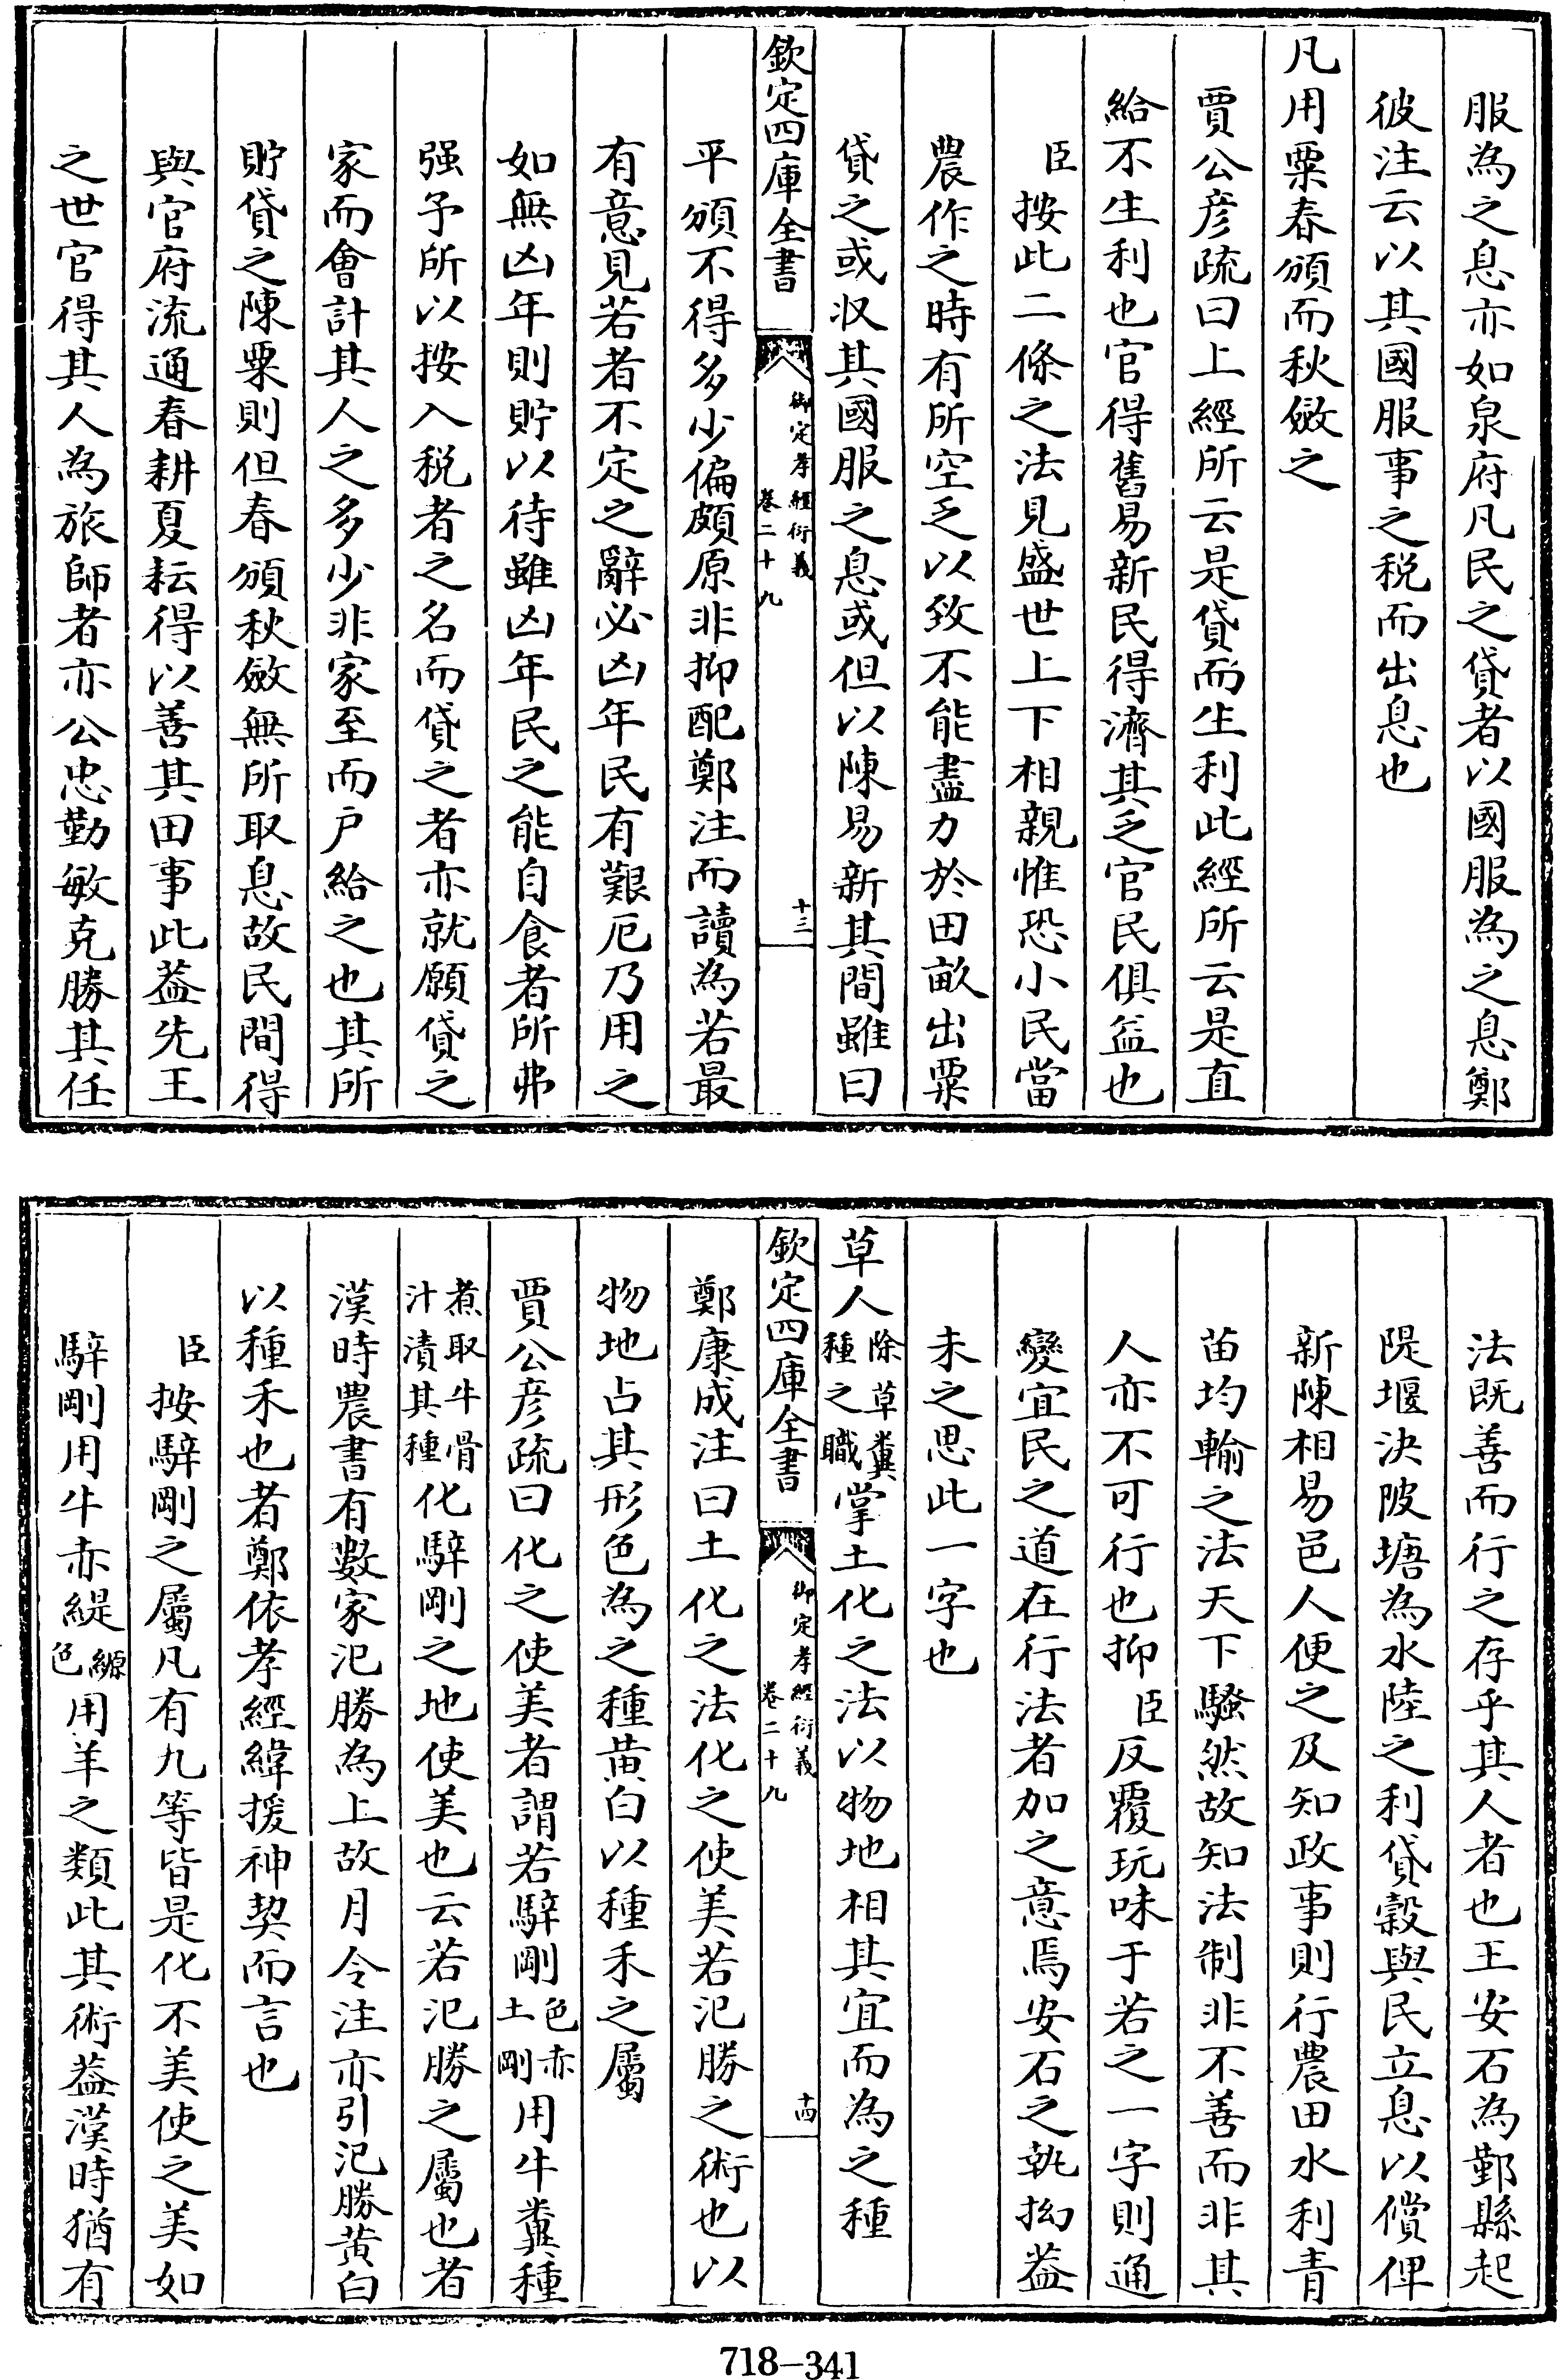 服為之息亦如泉府凡民之貸者以國服為之息鄭
彼注云以其國服事之税而出息也
凡用粟春頒而秋斂之
賈公彦疏曰上經所云是貸而生利此經所云是直
給不生利也官得舊易新民得濟其乏官民俱益也
臣按此二條之法見盛世上下相親惟恐小民當
農作之時有所空乏以致不能盡力於田畝出粟
貸之或収其國服之息或但以陳易新其間雖曰
欽定四庫全書 御定孝經衍義 卷二十九 十三
平頒不得多少偏頗原非抑配鄭注而讀為若最
有意見若者不定之辭必凶年民有艱厄乃用之
如無凶年則貯以待雖凶年民之能自食者所弗
强予所以按入税者之名而貸之者亦就願貸之
家而會計其人之多少非家至而户給之也其所
貯貸之陳粟則但春頒秋斂無所取息故民間得
與官府流通春耕夏耘得以善其田事此葢先王
之世官得其人為旅師者亦公忠勤敏克勝其任
法既善而行之存乎其人者也王安石為鄞縣起
隄堰決陂塘為水陸之利貸穀與民立息以償俾
新陳相易邑人便之及知政事則行農田水利青
苗均輸之法天下騷然故知法制非不善而非其
人亦不可行也抑臣反覆玩味于若之一字則通
變宜民之道在行法者加之意焉安石之執拗葢
未之思此一字也
草人除草糞種之職掌土化之法以物地相其宜而為之種
欽定四庫全書 御定孝經衍義 卷二十九 十四
鄭康成注曰土化之法化之使美若汜勝之術也以
物地占其形色為之種黄白以種禾之屬
賈公彦疏曰化之使美者謂若騂剛色赤土剛用牛糞種
煮取牛骨汁漬其種化騂剛之地使美也云若汜勝之屬也者
漢時農書有數家汜勝為上故月令注亦引汜勝黄白
以種禾也者鄭依孝經緯援神契而言也
臣按騂剛之屬凡有九等皆是化不美使之美如
騂剛用牛赤緹縓色用羊之類此其術葢漢時猶有
718-341